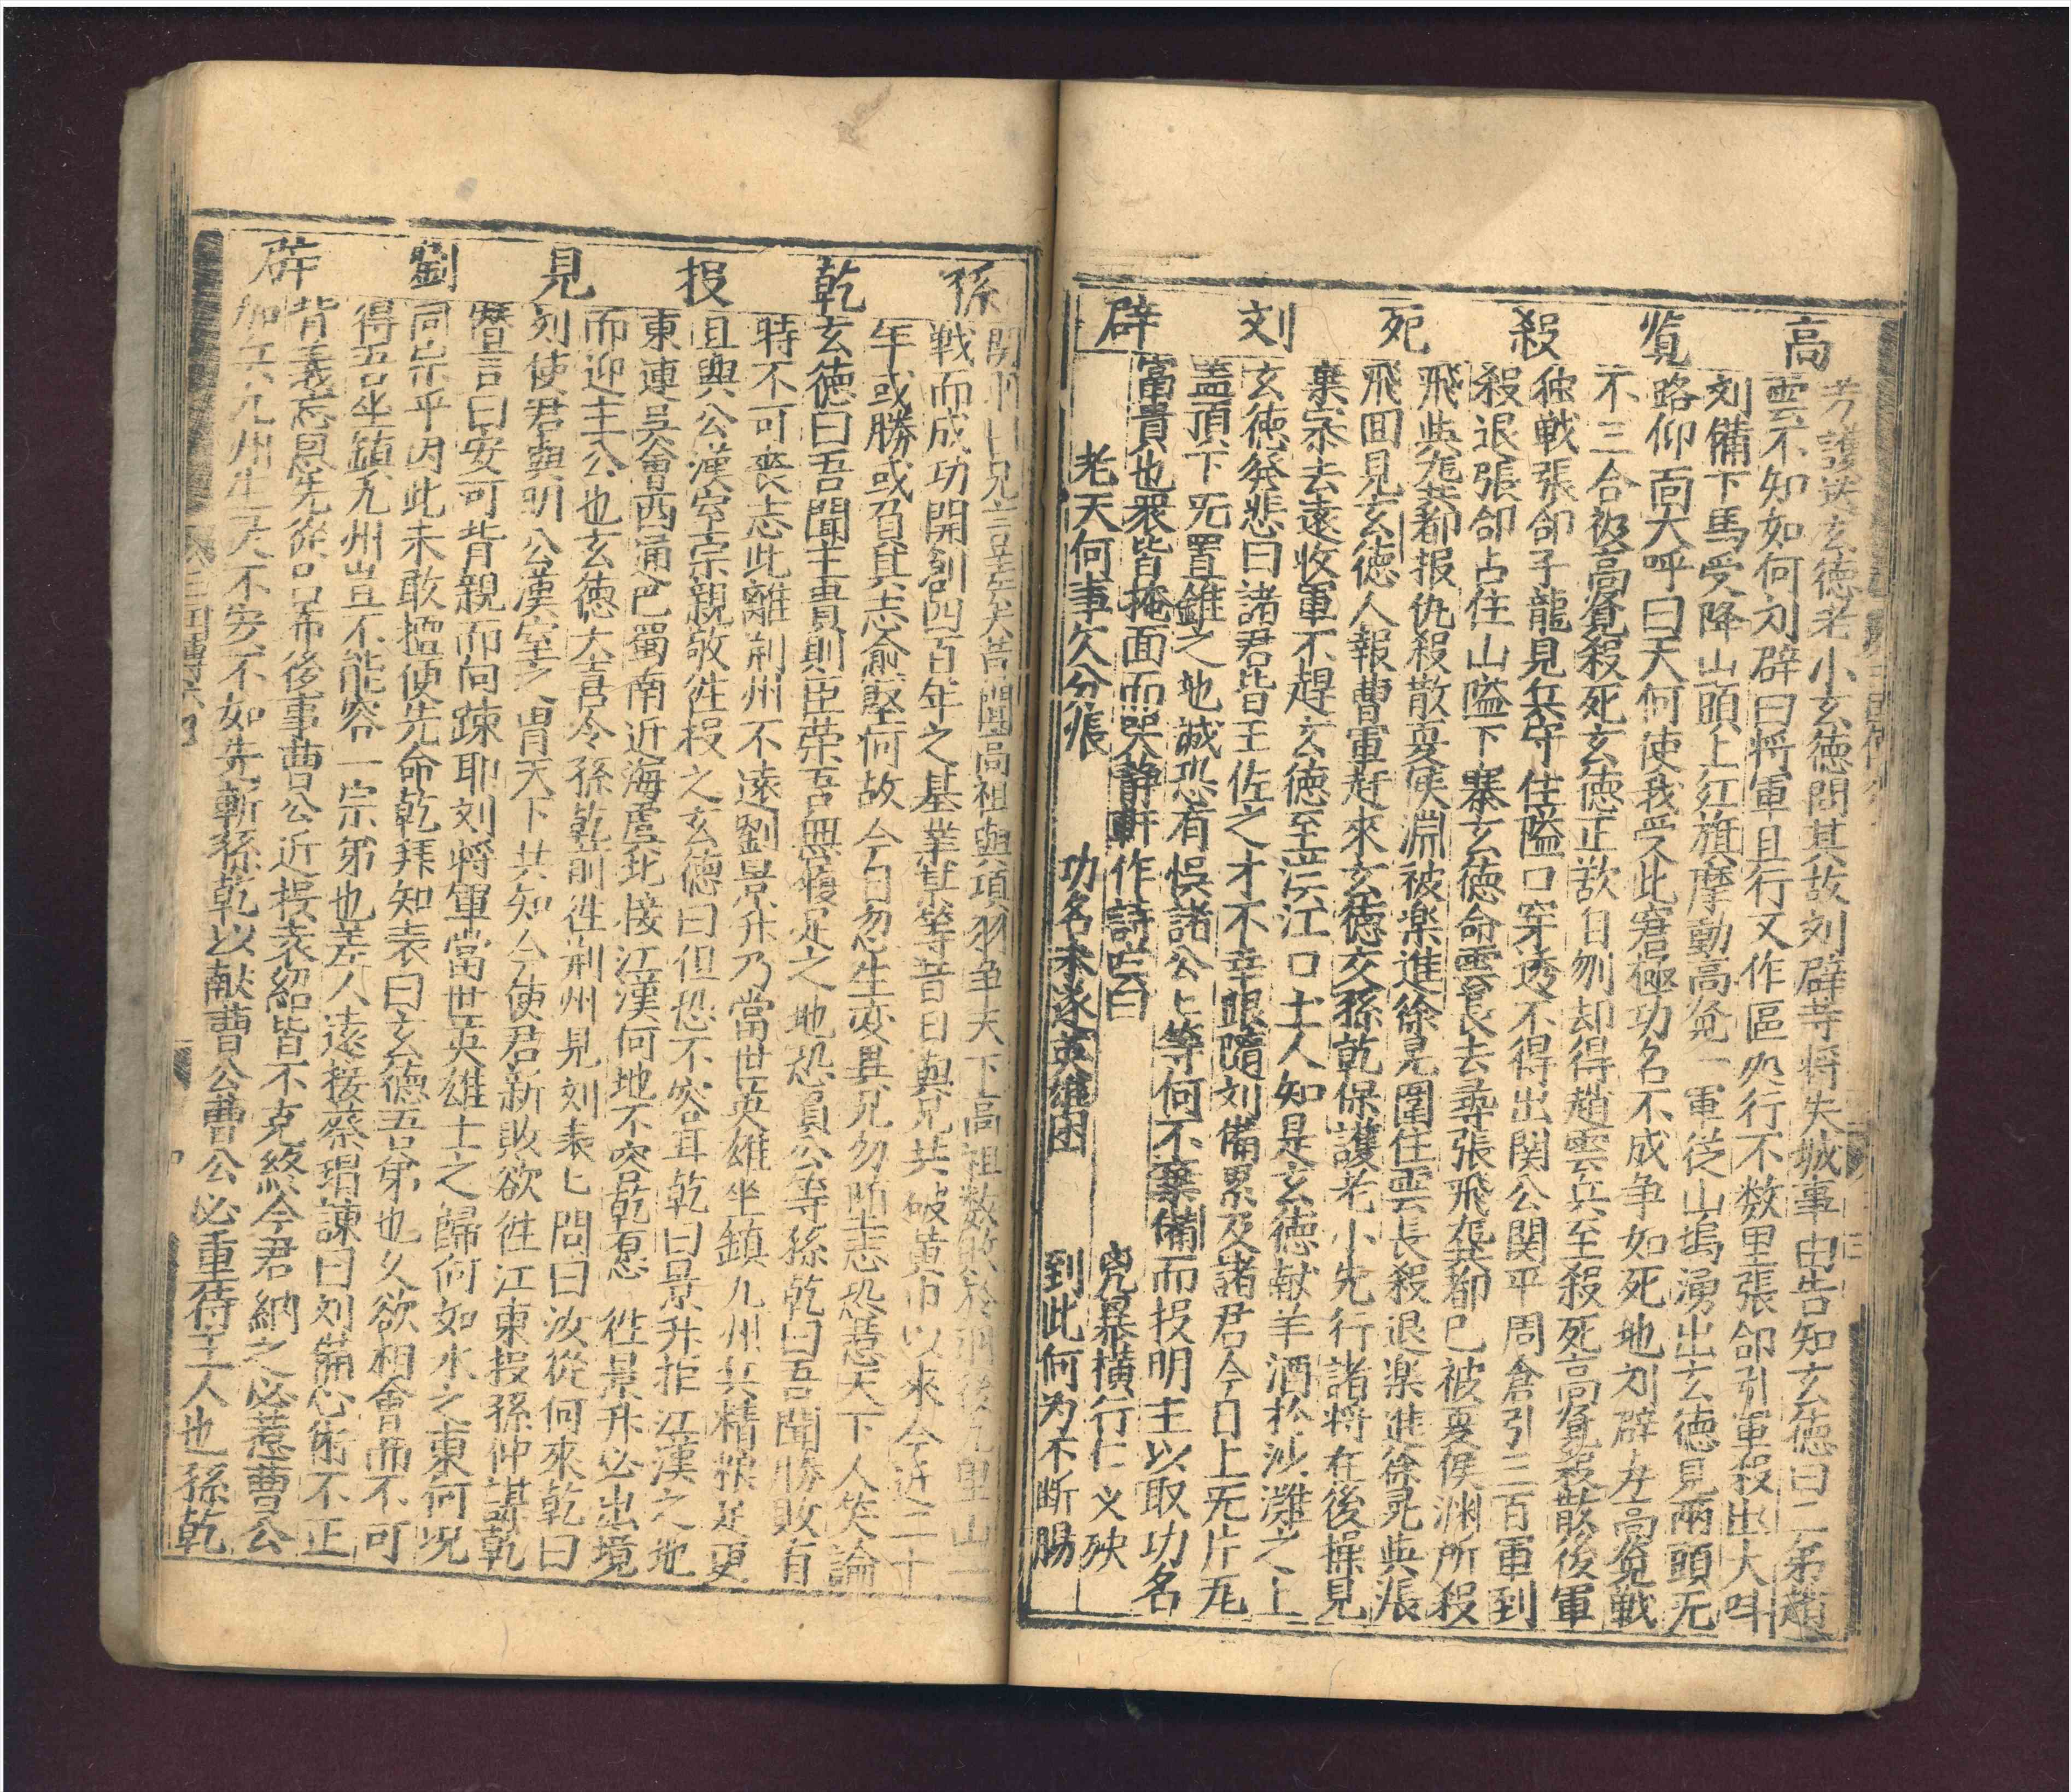 高覧殺死刘辟
芳護送玄徳老小玄徳問其故刘辟等将失城事由告知玄徳曰二弟趙
雲不知如何刘辟曰将軍且行又作區処行不数里張郃引軍殺出大叫
刘備下馬受降山頭上紅旗摩動高覧一軍従山塢湧出玄徳見兩頭无
路仰面大呼曰天何使我受此窘極功名不成争如死地刘辟与高覧戦
不三合被高覧殺死玄徳正欲自刎却得趙雲兵至殺死高覧殺散後軍
独戦張郃子龍見兵守住隘口穿透不得出関公関平周倉引三百軍到
殺退張郃占住山隘下寨玄徳命雲長去尋張飛龔都已被夏侯渊所殺
飛与龔都报仇殺散夏侯淵被楽進徐晃圍住雲長殺退楽進徐晃与張
飛囬見玄徳人報曹軍赶來玄徳交孫乾保護老小先行諸将在後操見
棄寨去遠收軍不趕玄徳至漢江口土人知是玄徳献羊酒於沙灘之上
玄徳発悲曰諸君皆王佐之才不幸跟隨刘備累及諸君今日上无片瓦
盖頂下无置錐之地誠恐有悞諸公ヒ等何不棄備而投明主以取功名
富貴也衆皆掩面而哭静軒作詩嘆曰
兇暴横行仁义殃
老天何事欠分張 功名未遂英雄困 到此何为不断腸
孫乾投見劉辟
関州曰兄言差矣昔聞高祖與項羽争天下高祖数敗於羽後九里山一
戦而成功開創四百年之基業某等昔日與兄共破黄巾以來今近二十
年或勝或負其志愈堅何故今日忽生変異兄勿堕志恐惹天下人笑論
玄徳曰吾聞主貴則臣荣吾無履足之地恐負公等孫乾曰吾聞勝敗有
時不可喪志此離荆州不遠劉景升乃當世英雄坐鎮九州兵精粮足更
且與公漢室宗親敬徃投之玄徳曰但恐不容耳乾曰景升拒江漢之地
東連吳會西通巴蜀南近海虞北接江漢何地不容乾憑 徃景升必出境
而迎主公也玄徳大喜令孫乾前徃荆州見刘表ヒ問曰汝從何來乾曰
刘使君與明公漢室之胄天下共知今使君新敗欲徃江東投孫仲謀乾
暦言曰安可背親而向踈耶刘将軍當世英雄士之歸何如水之東何况
同宗乎因此未敢擅便先命乾拜知表曰玄徳吾弟也久欲相會而不可
得吾坐鎮九州豈不能容一宗弟也差人遠接蔡瑁諫曰刘備心術不正
背義忘恩先從呂布後事曹公近投袁紹皆不克終今君納之必惹曹公
加兵九州生灵不安不如先斬孫乾以献曹公曹公必重待主人也孫乾